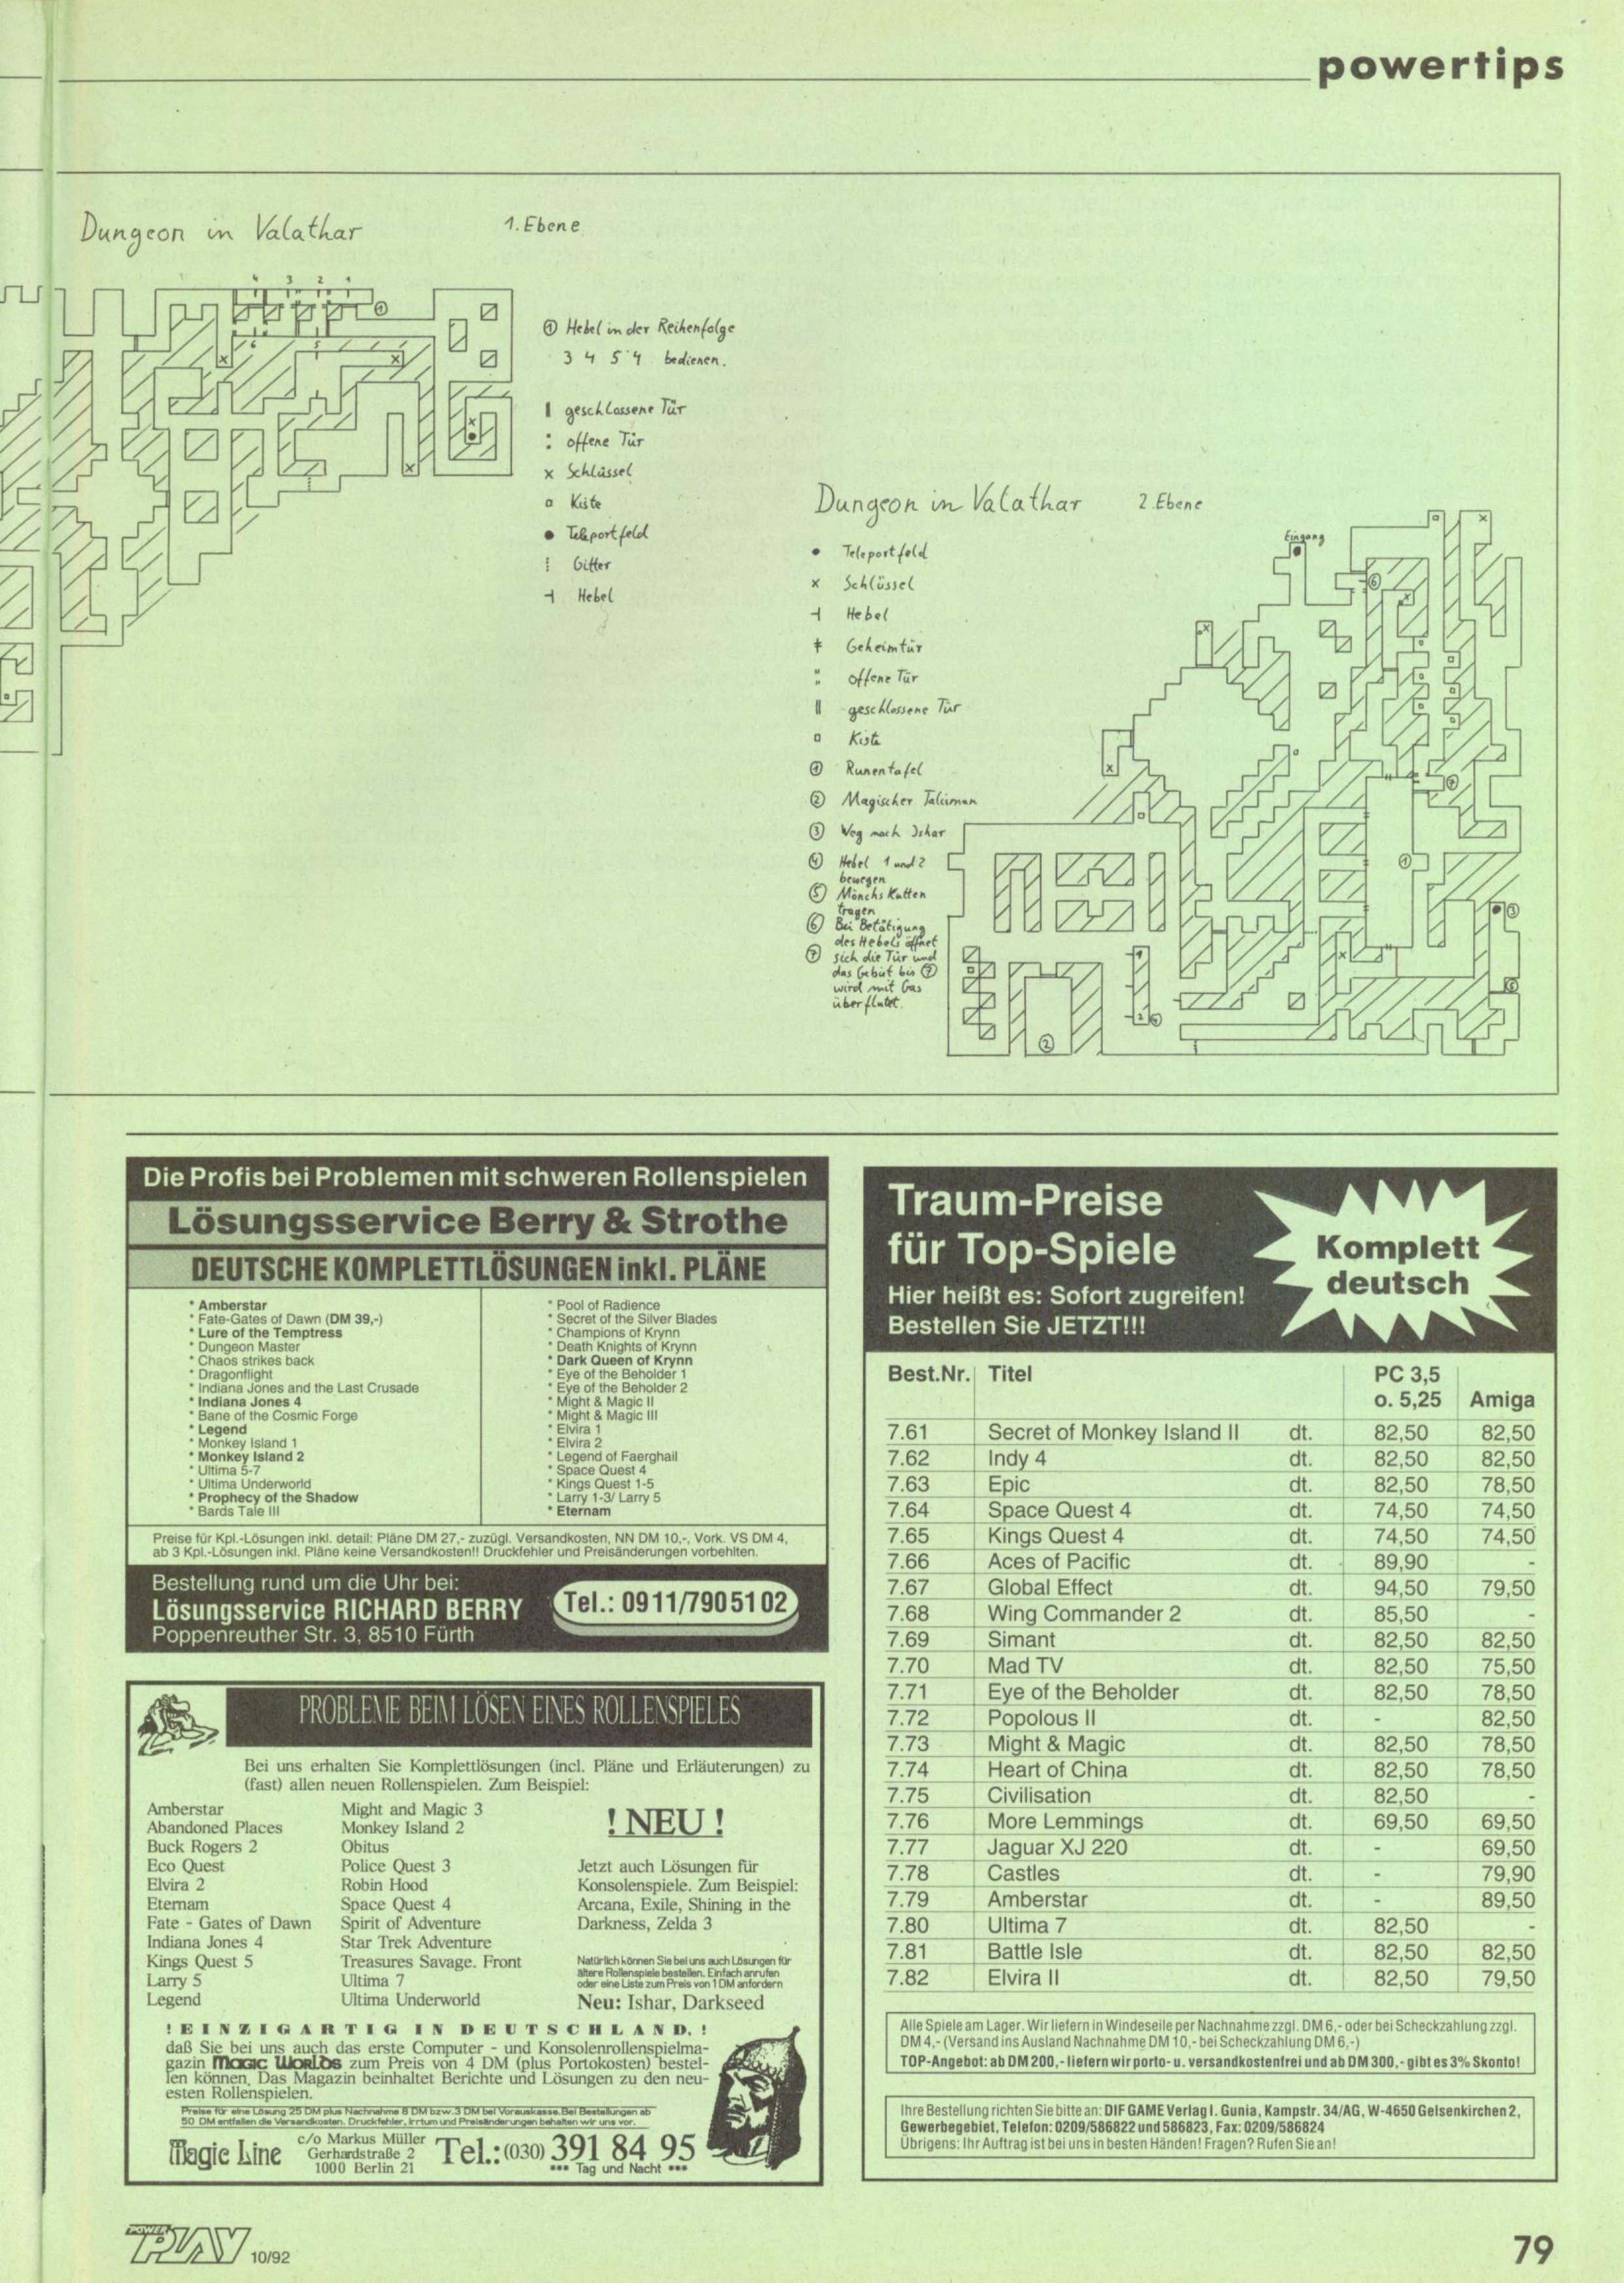 powertips
Dungeon in Valathar 1. Ebene
4 3 2 1
①
6 5
① Hebel in der Reihenfolge
3 4 5 4 bedienen.
geschlossene Tür
offene Tür
x Schlüssel
Kiste
Teleportfeld
Gitter
Hebel
Dungeon in Valathar 2. Ebene
Eingang
Teleportfeld
x Schlüssel
Hebel
Geheimtür
offene Tür
geschlossene Tür
Kiste
① Runentafel
② Magischer Talisman
③ Weg nach Ishar
④ Hebel 1 und 2
bewegen
⑤ Mönchs Kutten
tragen
⑥ Bei Betätigung
des Hebels öffnet
⑦ sich die Tür und
das Gebiet bis ⑦
wird mit Gas
überflutet.
Die Profis bei Problemen mit schweren Rollenspielen
Lösungsservice Berry & Strothe
DEUTSCHE KOMPLETTLÖSUNGEN inkl. PLÄNE
* Amberstar
* Fate-Gates of Dawn (DM 39,-)
* Lure of the Temptress
* Dungeon Master
* Chaos strikes back
* Dragonflight
* Indiana Jones and the Last Crusade
* Indiana Jones 4
* Bane of the Cosmic Forge
* Legend
* Monkey Island 1
* Monkey Island 2
* Ultima 5-7
* Ultima Underworld
* Prophecy of the Shadow
* Bards Tale III
* Pool of Radience
* Secret of the Silver Blades
* Champions of Krynn
* Death Knights of Krynn
* Dark Queen of Krynn
* Eye of the Beholder 1
* Eye of the Beholder 2
* Might & Magic II
* Might & Magic III
* Elvira 1
* Elvira 2
* Legend of Faerghail
* Space Quest 4
* Kings Quest 1-5
* Larry 1-3/ Larry 5
* Eternam
Preise für Kpl.-Lösungen inkl. detail: Pläne DM 27,- zuzügl. Versandkosten, NN DM 10,-, Vork. VS DM 4,
ab 3 Kpl.-Lösungen inkl. Pläne keine Versandkosten!! Druckfehler und Preisänderungen vorbehlten.
Bestellung rund um die Uhr bei:
Lösungsservice RICHARD BERRY
Poppenreuther Str. 3, 8510 Fürth
Tel.: 0911/7905102
PROBLEME BEIM LÖSEN EINES ROLLENSPIELES
Bei uns erhalten Sie Komplettlösungen (incl. Pläne und Erläuterungen) zu
(fast) allen neuen Rollenspielen. Zum Beispiel:
Amberstar
Abandoned Places
Buck Rogers 2
Eco Quest
Elvira 2
Eternam
Fate - Gates of Dawn
Indiana Jones 4
Kings Quest 5
Larry 5
Legend
Might and Magic 3
Monkey Island 2
Obitus
Police Quest 3
Robin Hood
Space Quest 4
Spirit of Adventure
Star Trek Adventure
Treasures Savage. Front
Ultima 7
Ultima Underworld
! NEU !
Jetzt auch Lösungen für
Konsolenspiele. Zum Beispiel:
Arcana, Exile, Shining in the
Darkness, Zelda 3
Natürlich können Sie bei uns auch Lösungen für
ältere Rollenspiele bestellen. Einfach anrufen
oder eine Liste zum Preis von 1 DM anfordern
Neu: Ishar, Darkseed
! EINZIGARTIG IN DEUTSCHLAND, !
daß Sie bei uns auch das erste Computer - und Konsolenrollenspielma-
gazin MAGIC WORLDS zum Preis von 4 DM (plus Portokosten) bestel-
len können. Das Magazin beinhaltet Berichte und Lösungen zu den neu-
esten Rollenspielen.
Preise für eine Lösung 25 DM plus Nachnahme 8 DM bzw.3 DM bei Vorauskasse.Bei Bestellungen ab
50 DM entfallen die Versandkosten. Druckfehler, Irrtum und Preisänderungen behalten wir uns vor.
Magic Line
c/o Markus Müller
Gerhardstraße 2
1000 Berlin 21
Tel.: (030) 391 84 95
*** Tag und Nacht ***
Traum-Preise
für Top-Spiele
Hier heißt es: Sofort zugreifen!
Bestellen Sie JETZT!!!
Komplett
deutsch
Best.Nr. Titel PC 3,5
o. 5,25 Amiga
7.61 Secret of Monkey Island II dt. 82,50 82,50
7.62 Indy 4 dt. 82,50 82,50
7.63 Epic dt. 82,50 78,50
7.64 Space Quest 4 dt. 74,50 74,50
7.65 Kings Quest 4 dt. 74,50 74,50
7.66 Aces of Pacific dt. 89,90 -
7.67 Global Effect dt. 94,50 79,50
7.68 Wing Commander 2 dt. 85,50 -
7.69 Simant dt. 82,50 82,50
7.70 Mad TV dt. 82,50 75,50
7.71 Eye of the Beholder dt. 82,50 78,50
7.72 Popolous II dt. - 82,50
7.73 Might & Magic dt. 82,50 78,50
7.74 Heart of China dt. 82,50 78,50
7.75 Civilisation dt. 82,50 -
7.76 More Lemmings dt. 69,50 69,50
7.77 Jaguar XJ 220 dt. - 69,50
7.78 Castles dt. - 79,90
7.79 Amberstar dt. - 89,50
7.80 Ultima 7 dt. 82,50 -
7.81 Battle Isle dt. 82,50 82,50
7.82 Elvira II dt. 82,50 79,50
Alle Spiele am Lager. Wir liefern in Windeseile per Nachnahme zzgl. DM 6,- oder bei Scheckzahlung zzgl.
DM 4,- (Versand ins Ausland Nachnahme DM 10,- bei Scheckzahlung DM 6,-)
TOP-Angebot: ab DM 200,- liefern wir porto- u. versandkostenfrei und ab DM 300,- gibt es 3% Skonto!
Ihre Bestellung richten Sie bitte an: DIF GAME Verlag I. Gunia, Kampstr. 34/AG, W-4650 Gelsenkirchen 2,
Gewerbegebiet, Telefon: 0209/586822 und 586823, Fax: 0209/586824
Übrigens: Ihr Auftrag ist bei uns in besten Händen! Fragen? Rufen Sie an!
POWER PLAY 10/92
79